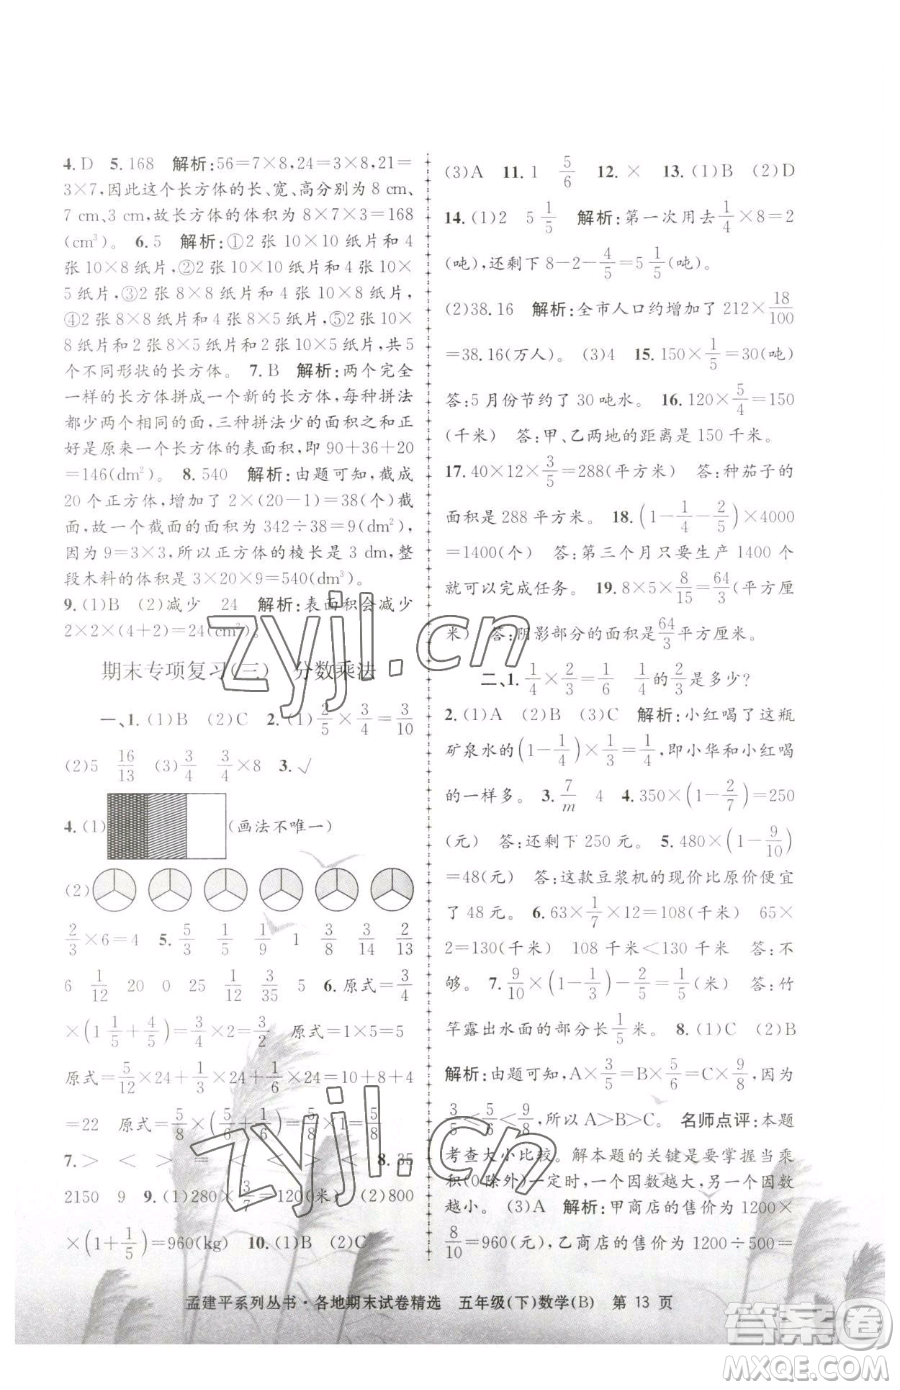 4. D  5. 168  解析:56=7×8,24=3×8,21=
3×7,因此这个长方体的长、宽、高分别为 8 cm,
7 cm,3 cm,故长方体的体积为 8×7×3=168
(cm³)。 6. 5  解析:①2 张 10×10 纸片和 4
张 10×8 纸片,②2 张 10×10 纸片和 4 张 10×
5 纸片,③2 张 8×8 纸片和 4 张 10×8 纸片,
④2 张 8×8 纸片和 4 张 8×5 纸片,⑤2 张
10×8 纸片和 2 张 8×5 纸片和 2 张 10×5 纸片,共 5
个不同形状的长方体。 7. B  解析:两个完全
一样的长方体拼成一个新的长方体,每种拼法
都少两个相同的面,三种拼法少的面积之和正
好是原来一个长方体的表面积,即 90+36+20
=146(dm²)。 8. 540  解析:由题可知,截成
20 个正方体,增加了 2×(20-1)=38(个)截
面,故一个截面的面积为 342÷38=9(dm²),
因为 9=3×3,所以正方体的棱长是 3 dm,整
段木料的体积是 3×20×9=540(dm³)。
9. (1)B  (2)减少  24  解析:表面积会减少
2×2×(4+2)=24(cm²)。
期末专项复习(三)  分数乘法
一、1. (1)B  (2)C  2. (1) 2/5 × 3/4 = 3/10
(2)5  16/13  (3) 3/4  3/4 ×8  3. √
4. (1) (画法不唯一)
(2)
2/3 ×6=4  5. 5/3  1/4  1/9  1  3/8  3/14  2/13
6  1/12  20  0  25  3/12  3/35  5  6. 原式= 3/4
×(1 1/5 + 4/5)= 3/4 ×2= 3/2  原式=1×5=5
原式= 5/12 ×24+ 1/3 ×24+ 1/6 ×24=10+8+4
=22  原式= 5/8 ×(5/6 + 1/6)= 5/8 ×1= 5/8
7. >  <  <  >  <  >  8. 35
2150  9  9. (1)280× 3/7 =120(米)  (2)800
×(1+ 1/5)=960(kg)  10. (1)B  (2)C
(3)A  11. 1  5/6  12. ×  13. (1)B  (2)D
14. (1)2  5 1/5  解析:第一次用去 1/4 ×8=2
(吨),还剩下 8-2- 4/5 =5 1/5 (吨)。
(2)38.16  解析:全市人口约增加了 212× 18/100
=38.16(万人)。 (3)4  15. 150× 1/5 =30(吨)
答:5 月份节约了 30 吨水。 16. 120× 5/4 =150
(千米)  答:甲、乙两地的距离是 150 千米。
17. 40×12× 3/5 =288(平方米)  答:种茄子的
面积是 288 平方米。 18. (1- 1/4 - 2/5)×4000
=1400(个)  答:第三个月只要生产 1400 个
就可以完成任务。 19. 8×5× 8/15 = 64/3 (平方厘
米)  答:阴影部分的面积是 64/3 平方厘米。
二、1. 1/4 × 2/3 = 1/6  1/4 的 2/3 是多少?
2. (1)A  (2)B  (3)C  解析:小红喝了这瓶
矿泉水的(1- 1/4)× 1/3 = 1/4,即小华和小红喝
的一样多。 3. 7/m  4  4. 350×(1- 2/7)=250
(元)  答:还剩下 250 元。 5. 480×(1- 9/10)
=48(元)  答:这款豆浆机的现价比原价便宜
了 48 元。 6. 63× 1/7 ×12=108(千米)  65×
2=130(千米)  108 千米<130 千米  答:不
够。 7. 9/10 ×(1- 1/3)- 2/5 = 1/5 (米)  答:竹
竿露出水面的部分长 1/5 米。 8. (1)C  (2)B
解析:由题可知,A× 3/5 =B× 5/8 =C× 9/8,因为
3/5 < 5/8 < 9/8,所以 A>B>C。 名师点评:本题
考查大小比较。解本题的关键是要搞清楚:乘
积(0 除外)一定时,一个因数越大,另一个因数
越小。 (3)A  解析:甲商店的售价为 1200×
8/10 =960(元),乙商店的售价为 1200÷500=
孟建平系列丛书·各地期末试卷精选  五年级(下)数学(B)  第 13 页
zyjl.cn
zyjl.cn
答案圈
MXQE.COM